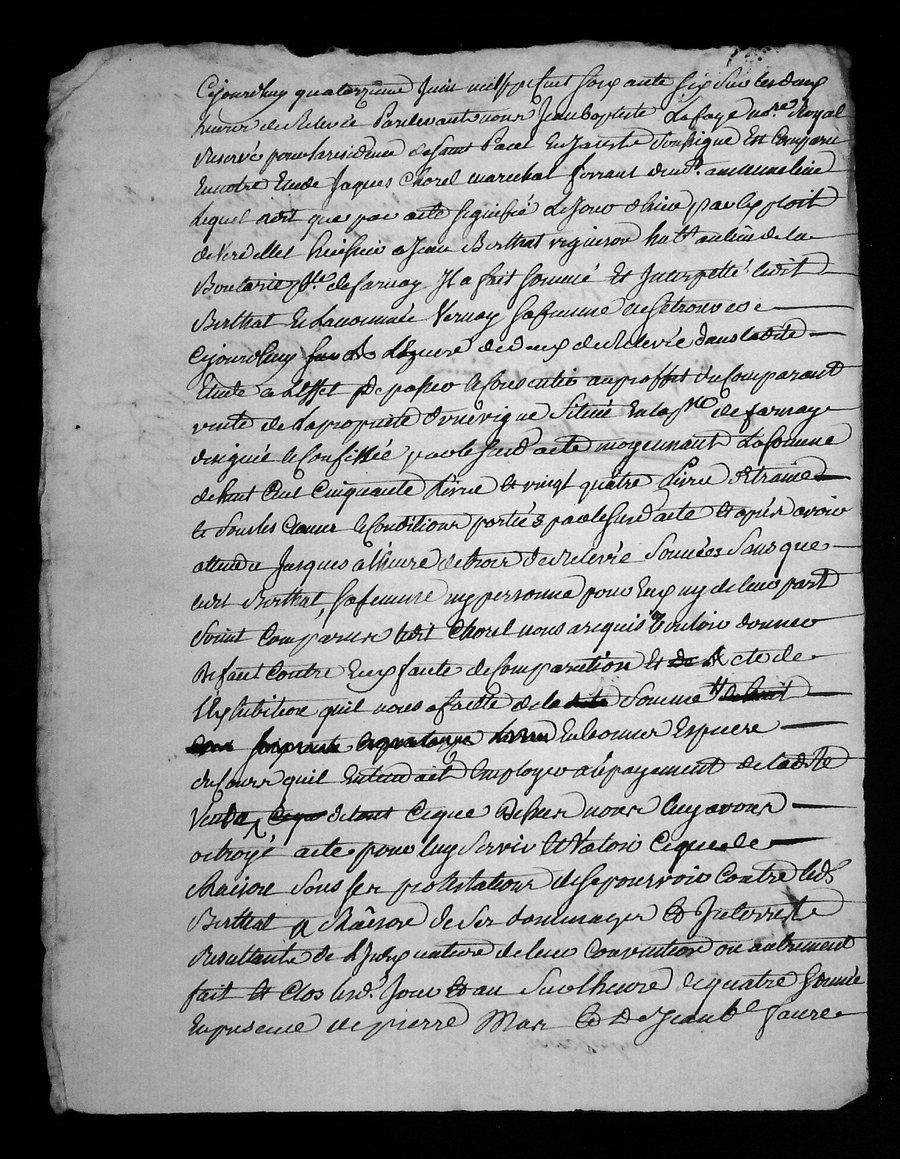 Cejourdhuy quatorzieme Juin mil sept cent soixante six sur les deux
heures de Relevée Pardevant nous Jean baptiste Lafaye no.re Royal
Reservé pour la residence de Saint Pacel En Jareste Soussigné Est Comparu
En notre Etude Jaques Chorel marechal ferrant
Lequel a dit que par acte signifié Le Jour d'hier par Exploit
de Verdellet huissier a Jean Berthat vigneron hab.t au lieu de la
p.sse de farnay Il a fait sommé Et Interpellé ledit
Berthat Et La nommée Vernay sa femme de se trouver
Cejourdhuy a Lheure de deux de Relevée dans ladite
Etude a Leffet de passer le consentir au proffit du Comparant
vente de La proprieté d'une vigne Située En la p.sse de farnay
designée & Confinée par le susd acte moyennant La somme
de huit Cent Cinquante Livres & vingt quatre Livres d'Etraines
& sous les Clauses & Conditions portées par le susd acte Et apres avoir
attendu Jusques a l'heure de trois de Relevée Sonnées Sans que
ledit Berthat, sa femme ny personne pour Eux ny de leur part
soient Comparus ledit Chorel nous a requis Vouloir donner
Defaut Contre Eux faute de Comparution Et Acte de
L'Exhibition quil nous a faitte de la somme
En bonnes Especes
du Cours quil Entendait Employer au payement de ladite
Vente Ce que Dessus nous luy avons
octroyé acte pour luy servir & Valoir Ce que de
Raison sous ses protestations de se pourvoir Contre led.
Berthat a Raison de ses dommages & Interrests
Resultants de L'Inexecution de leur Convention ou autrement
fait & Clos lesd. Jour & an Sur lheure de quatre Sonnée
En presence de pierre Mas & De Jean b.te faure